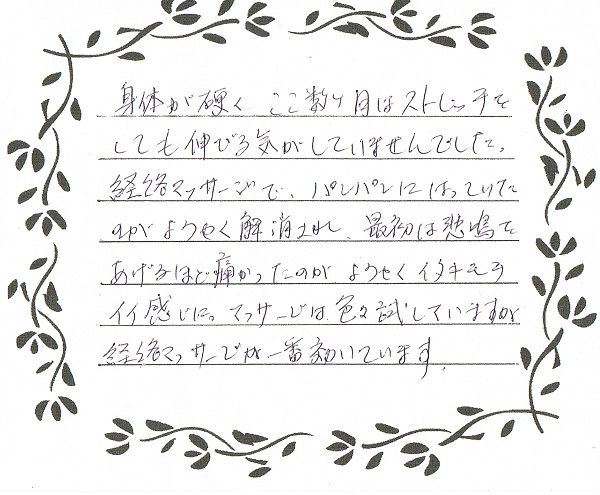 身体が硬く ここ数ヶ月はストレッチを
しても伸びる気がしていませんでした。
経絡マッサージで、パンパンにはっていた
のがようやく解消され、最初は悲鳴を
あげるほど痛かったのが ようやくイタキモチ
イイ感じに。マッサージは色々試していますが
経絡マッサージが一番効いています。